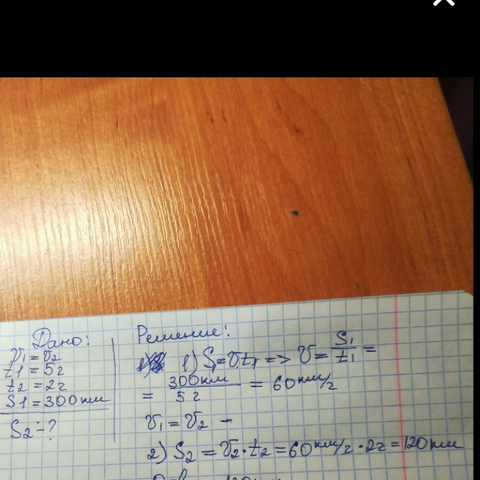 Дано:
v₁ = v₂
t1 = 5г
t2 = 2г
S1 = 300км
S2 - ?
Решение:
1) S₁ = vt₁ => v = S₁/t₁ =
= 300км/5г = 60км/г
v₁ = v₂ -
2) S₂ = v₂·t₂ = 60км/г·2г = 120км